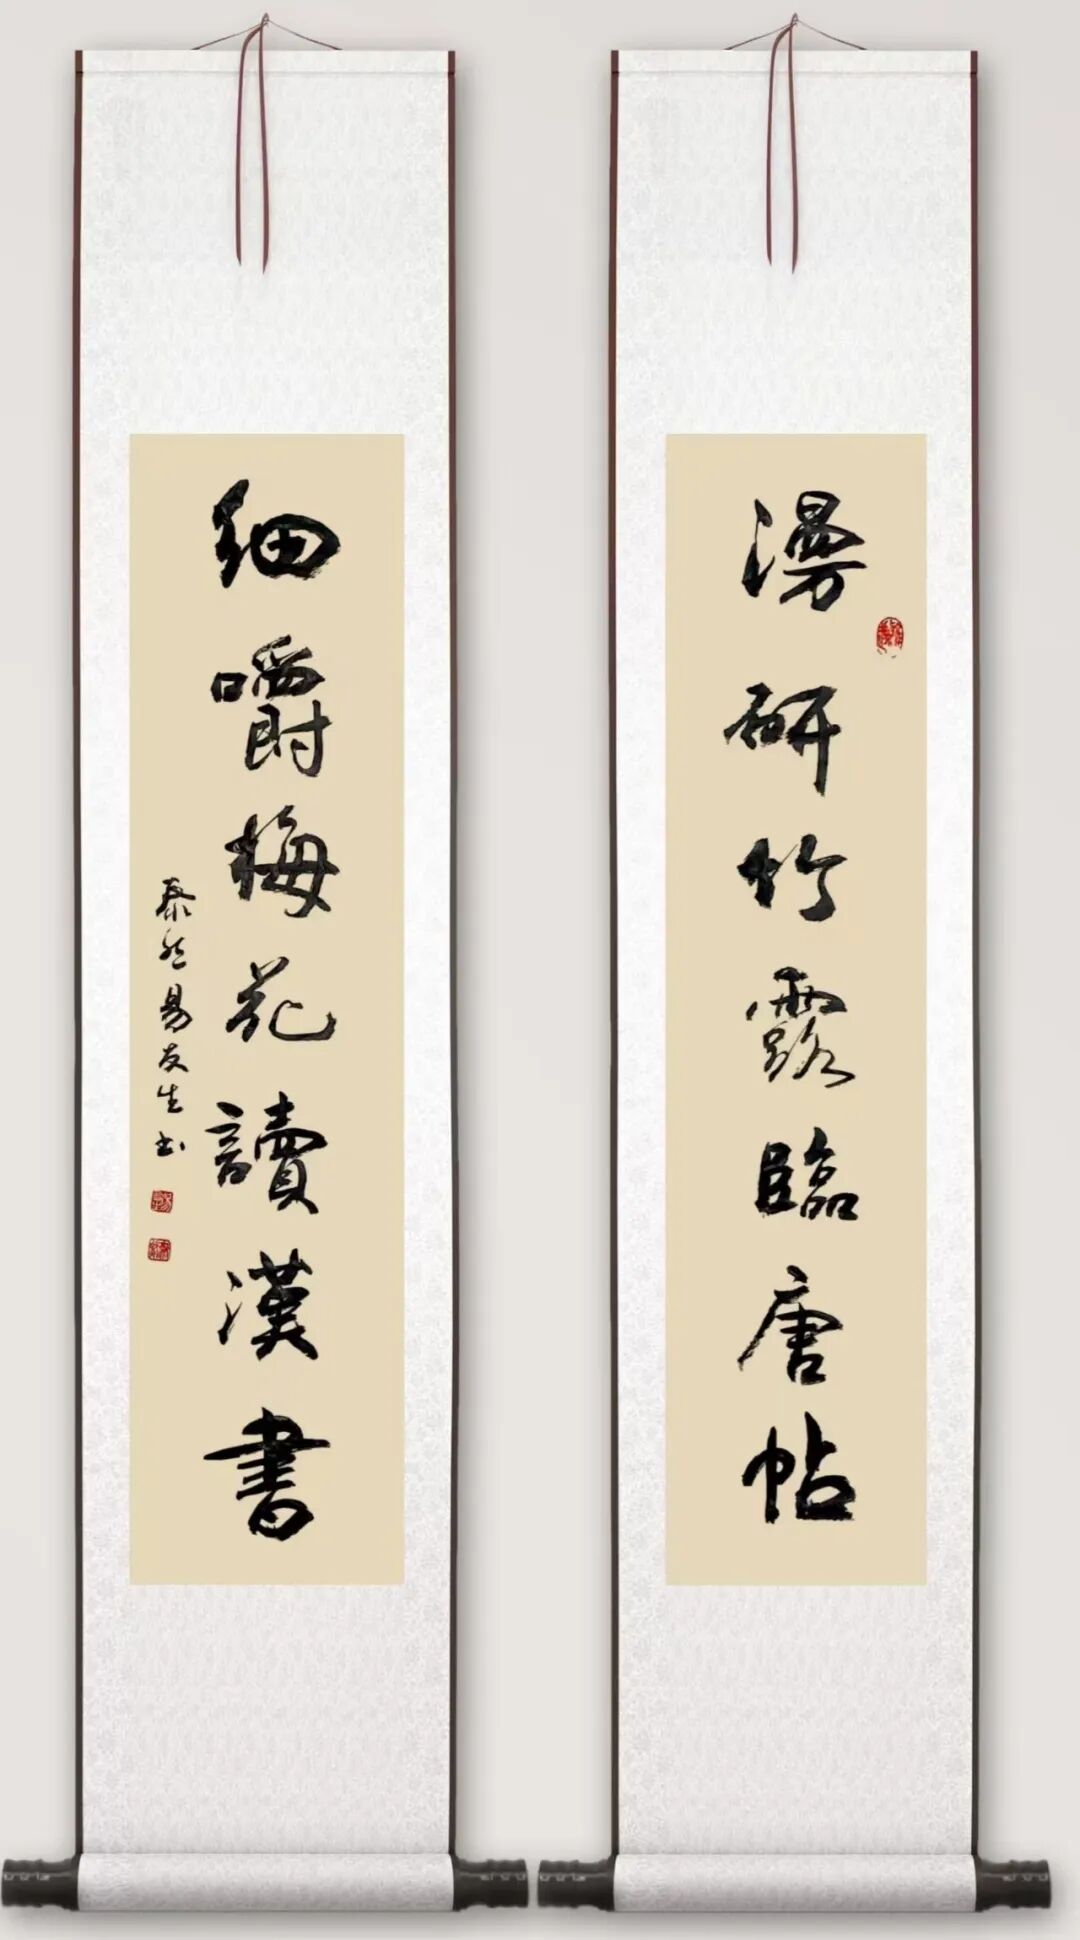 漫研竹露臨唐帖
細嚼梅花讀漢書
泰然易友生书